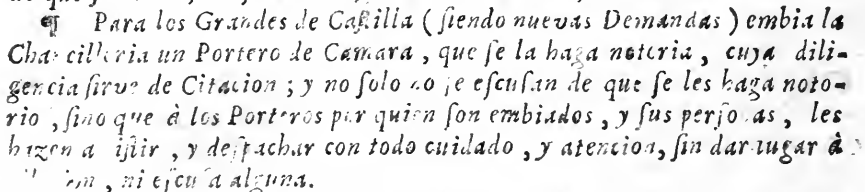 ¶ Para los Grandes de Castilla ( ſiendo nuevas Demandas ) embia la
Chancilleria un Portero de Camara , que ſe la haga notoria , cuya dili-
gencia ſirve de Citacion ; y no ſolo no ſe eſcuſan de que ſe les haga noto-
rio , ſino que à los Porteros por quien ſon embiados , y ſus perſonas , les
hazen aſiſtir , y deſpachar con todo cuidado , y atencion, ſin dar lugar à
ni eſcuſa alguna.